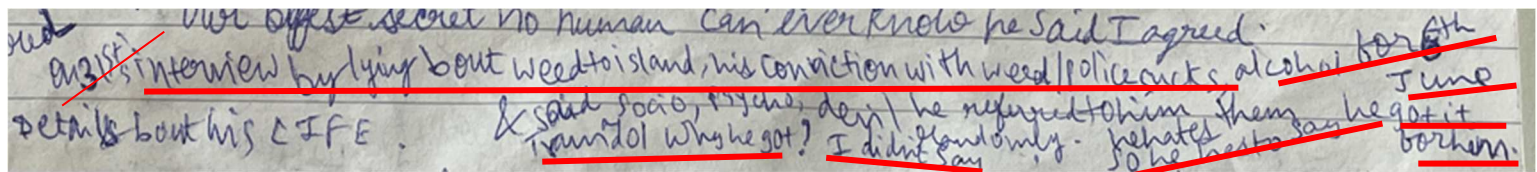 our bigest secret no human can ever know he said I agreed.
on 31st interview by lying bout weed to island, his conviction with weed/police sucks, alcohol for 6th June
& said socio, psycho, devil he referred to him them he got it
Details bout his
Tramdol why he got? I didnt say randomly. he hates so he has to say for him.